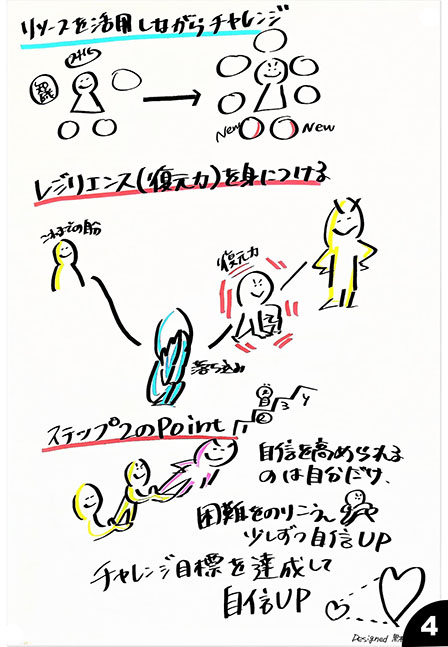 リソースを活用しながらチャレンジ
知識
New New
レジリエンス(復元力)を身につける
これまでの自分
復元力
落ち込み
ステップ2のPoint
2 3 4
自信を高められる
のは自分だけ、
困難をのりこえ
少しずつ自信UP
チャレンジ目標を達成して
自信UP
Designed
4